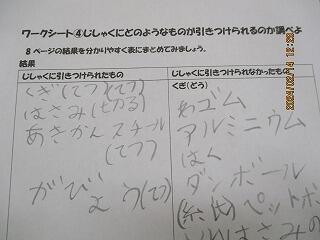 ワークシート④じしゃくにどのようなものが引きつけられるのか調べよ
8ページの結果を分かりやすく表にまとめてみましょう。
結果
じしゃくに引きつけられたもの
くぎ(てつ)(てつ)
はさみ(切る)
あきかん スチール
(てつ)
がびょう(てつ)
じしゃくに引きつけられなかったもの
くぎ(どう)
わゴム
アルミニウム
はく
ダンボール
(紙) ペットボ
はさみの